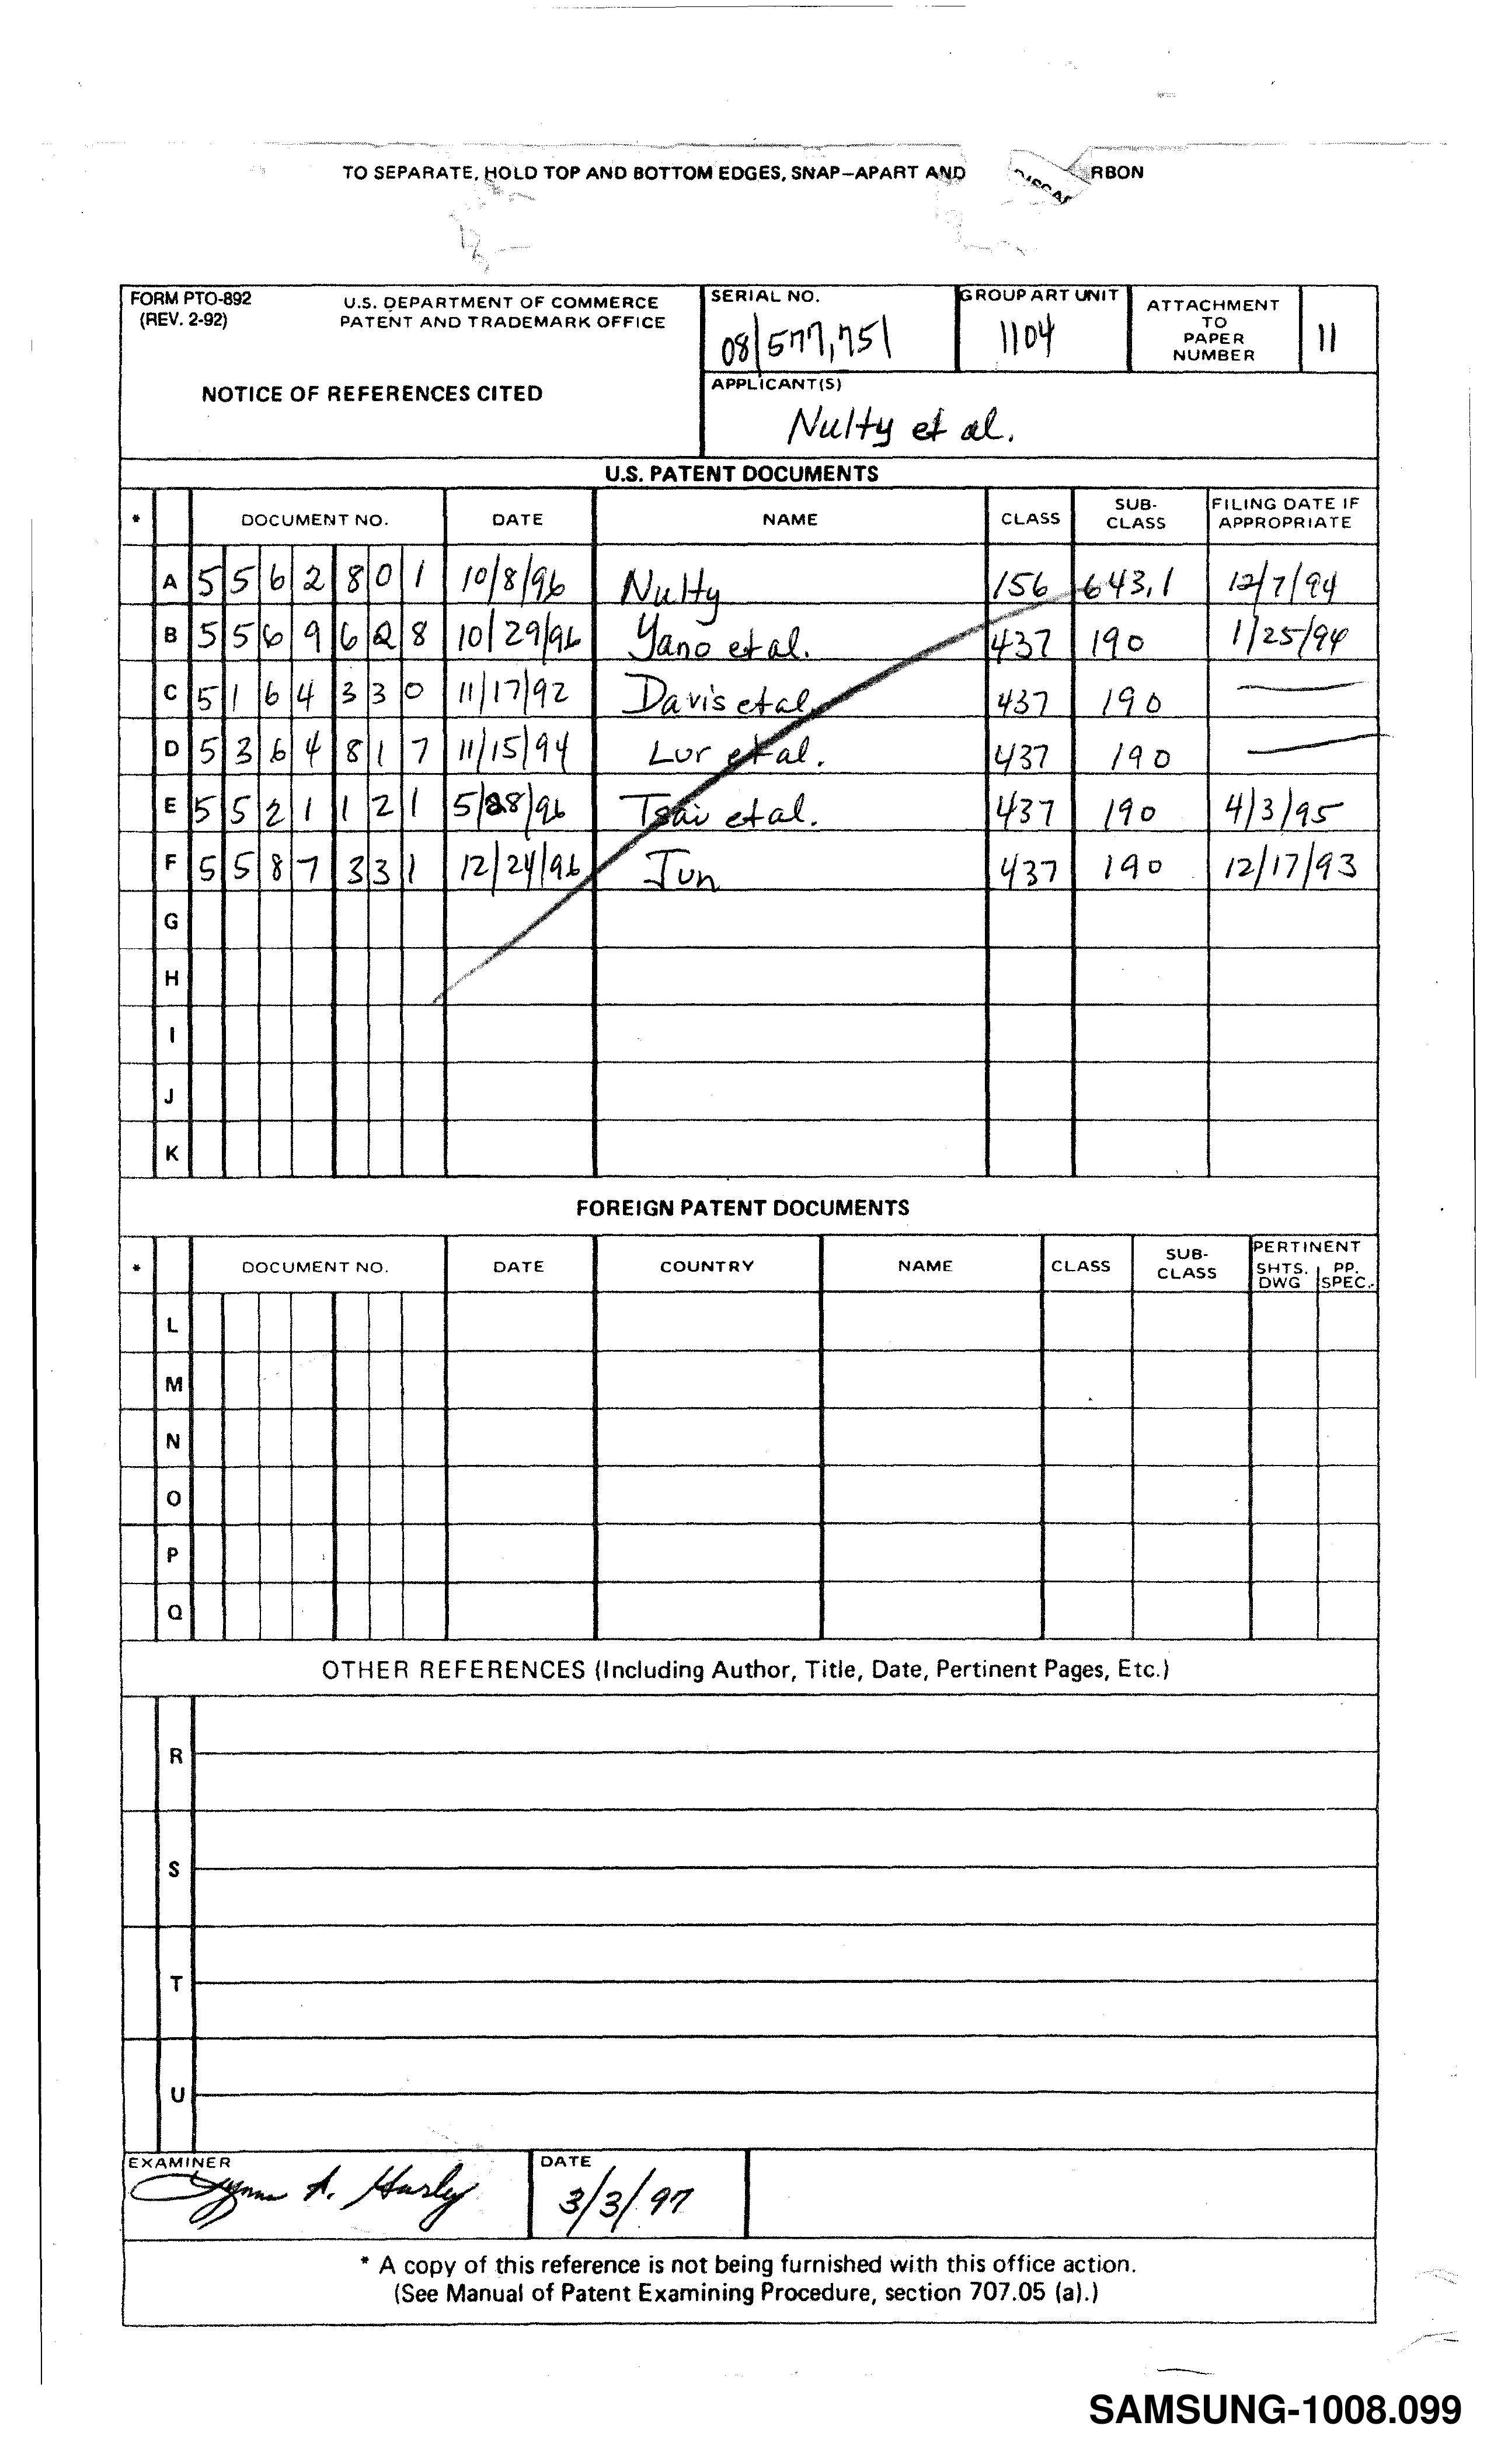 TO SEPARATE, HOLD TOP AND BOTTOM EDGES, SNAP-APART AND DISCAR RBON
FORM PTO-892
(REV. 2-92)
U.S. DEPARTMENT OF COMMERCE
PATENT AND TRADEMARK OFFICE
NOTICE OF REFERENCES CITED
SERIAL NO.
08/577,751
GROUP ART UNIT
1104
ATTACHMENT
TO
PAPER
NUMBER
11
APPLICANT(S)
Nulty et al.
U.S. PATENT DOCUMENTS
* DOCUMENT NO. DATE NAME CLASS SUB-CLASS FILING DATE IF APPROPRIATE
A 5562801 10/8/96 Nulty 156 643.1 12/7/94
B 5569628 10/29/96 Yano et al. 437 190 1/25/94
C 5164330 11/17/92 Davis et al. 437 190 —
D 5364817 11/15/94 Lur et al. 437 190 —
E 5521121 5/28/96 Tsai et al. 437 190 4/3/95
F 5587331 12/24/96 Jun 437 190 12/17/93
G
H
I
J
K
FOREIGN PATENT DOCUMENTS
* DOCUMENT NO. DATE COUNTRY NAME CLASS SUB-CLASS PERTINENT SHTS. DWG PP. SPEC.
L
M
N
O
P
Q
OTHER REFERENCES (Including Author, Title, Date, Pertinent Pages, Etc.)
R
S
T
U
EXAMINER
Lynn A. Gurley
DATE
3/3/97
* A copy of this reference is not being furnished with this office action.
(See Manual of Patent Examining Procedure, section 707.05 (a).)
SAMSUNG-1008.099